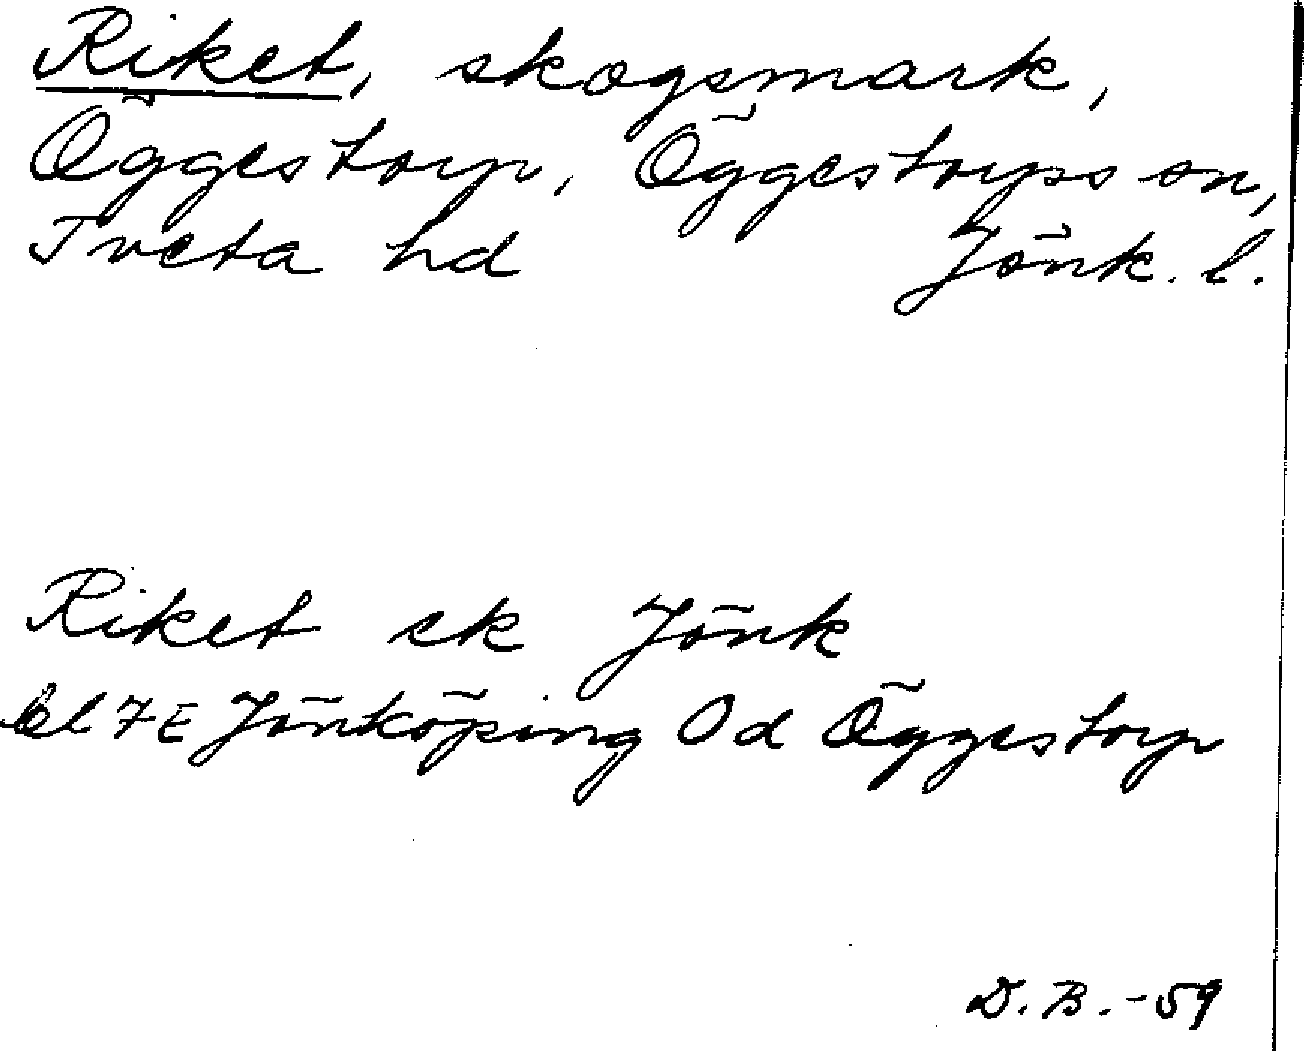 Riket, skogsmark,
Öggestorp, Öggestorps sn,
Tveta hd Jönk. l.
Riket ek Jönk
bl 7E Jönköping Od Öggestorp
D. B. -59